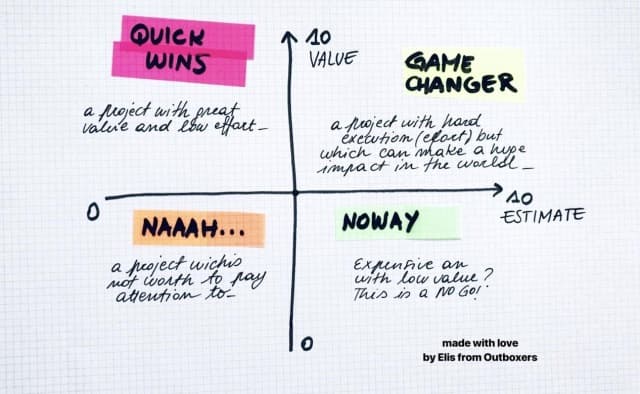 QUICK
WINS
a project with great
value and low effort_
10
VALUE
GAME
CHANGER
a project with hard
execution (efort) but
which can make a hupe
impact in the world_
0
10
ESTIMATE
NAAAH...
a project wichis
not worth to pay
attention to_
NOWAY
Expensive an
with low value?
This is a NO GO!
0
made with love
by Elis from Outboxers